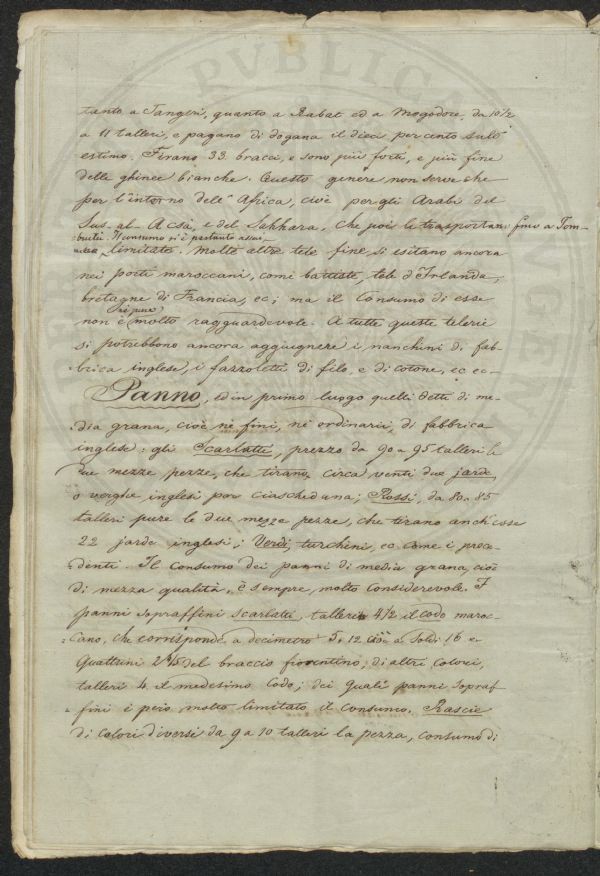 tanto a Tangeri, quanto a Rabat ed a Mogodore da 10 1/2
a 11 talleri, e pagano di dogana il dieci per cento sull'
estimo. Tirano 33. bracci, e sono più forti, e più fine
delle ghinee bianche. Questo genere non serve che
per l'interno dell'Africa, cioè per gli Arabi del
Sus-al-Acsà, e del Sahhara, che poi le trasportano fino a Tom-
buctù. Il consumo si è pertanto assai
limitato. Molte altre tele fine si esitano ancora
nei porti maroccani, come battiste, tele d'Irlanda,
bretagne di Francia, ec; ma il consumo di esse
non è molto ragguardevole. A tutte queste telerie
si potrebbono ancora aggiugnere i nanchini di fab-
brica inglese, i fazzoletti di filo, e di cotone, ec ec-
Panno, ed in primo luogo quelli detti di me-
dia grana, cioè nè fini, nè ordinarii, di fabbrica
inglese: gli Scarlatti, prezzo da 90 a 95 talleri le
due mezze pezze, che tirano circa venti due jarde,
o verghe inglesi per ciascheduna; Rossi, da 80 a 85
talleri pure le due mezze pezze, che tirano anch'esse
22 jarde inglesi; Verdi, turchini, ec come i prece-
denti. Il consumo dei panni di media grana, cioè
di mezza qualità, è sempre molto considerevole. I
panni sopraffini scarlatti, talleri 4 1/2 il codo maroc-
cano, che corrisponde a decimetri 5,12 cioè a Soldi 16 e
Quattrini 2 4/5 del braccio fiorentino; di altri colori,
talleri 4 il medesimo Codo; dei quali panni sopraf-
fini è però molto limitato il consumo. Rascie
di colori diversi da 9 a 10 talleri la pezza, consumo di
PVBLIC